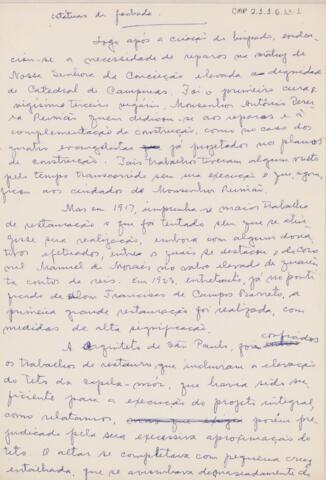 estátuas da fachada.
CMP 2.1.1.6
Logo após a criação do bispado, eviden-
ciou-se a necessidade de reparos na matriz de
Nossa Senhora da Conceição elevada a dignidade
de Catedral de Campinas. Foi o primeiro cura e
vigésimo terceiro vigário, Monsenhor Antônio Perei-
ra Reimão quem dedicou-se aos reparos e à
complementação da construção, como no caso dos
quatro evangelistas já projetados no plano
de construção. Tais trabalhos tiveram algum custo
pelo tempo transcorrido sem sua execução e que agora,
ficou aos cuidados de Monsenhor Reimão.
Mas em 1917, impunha-se maior trabalho
de restauração o que foi tentado sem que se atin
gisse sua realização, embora com alguns dona-
tivos efetuados, entre os quais se destacou o de Dona
Manoel de Moraes no valor elevado de quaren
ta contos de reis. Em 1923, entretanto, já no ponti
ficado de Dom Francisco de Campos Barreto, a
primeira grande restauração foi realizada, com
medidas de alta significação.
A Arquiteto de São Paulo, foram confiados
os trabalhos de restauro que incluiram a elevação
do teto da capela-mor, que havia sido su
ficiente para a execução do projeto integral,
como relatamos, porém pre
judicado pela sua excessiva aproximação do
teto. O altar se completava com pequena cruz
entalhada, que se avizinhava demasiadamente do